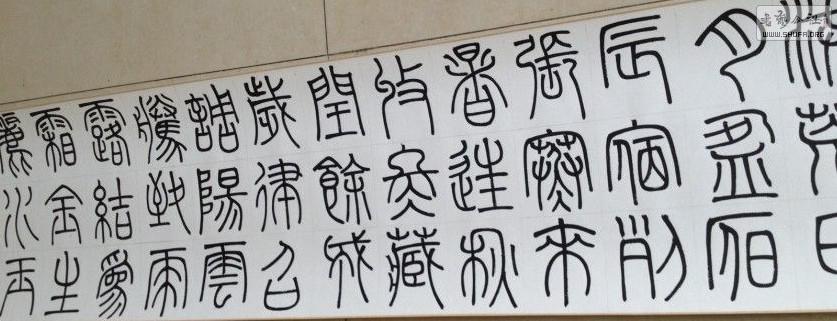 洪荒日
月盈昃
辰宿列
張寒來
暑往秋
收冬藏
閏餘成
歲律召
調陽雲
騰致雨
露結爲
霜金生
麗水玉
WWW.SHUFA.ORG